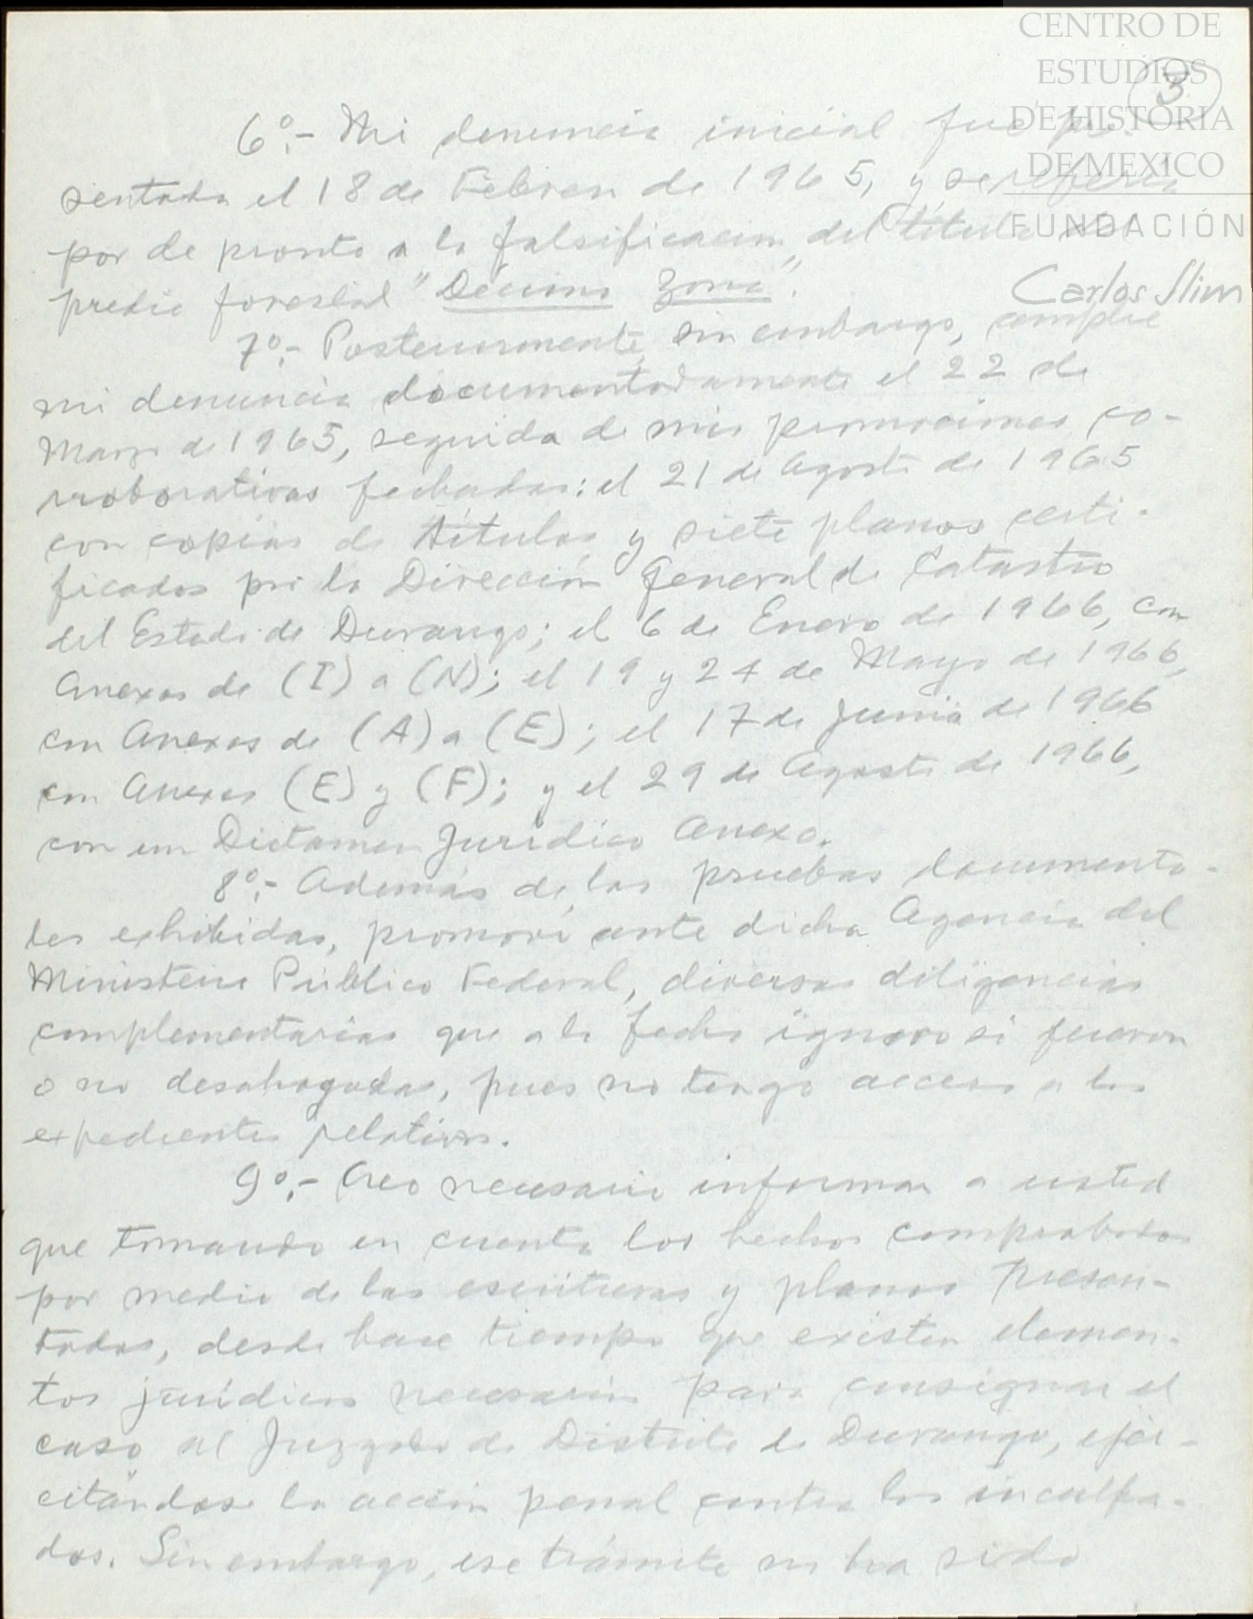 CENTRO DE
ESTUDIOS
DE HISTORIA
DE MEXICO
FUNDACIÓN
Carlos Slim
3
6º.- Mi denuncia inicial fue pre-
sentada el 18 de Febrero de 1965, y se refería
por de pronto a la falsificación del título del
predio forestal "Décima Zona".
7º.- Posteriormente, sin embargo, amplié
mi denuncia documentadamente el 22 de
Marzo de 1965, seguida de mis promociones co-
rroborativas fechadas: el 21 de Agosto de 1965
con copias de títulos y siete planos certi-
ficados por la Dirección General de Catastro
del Estado de Durango; el 6 de Enero de 1966, con
Anexos de (I) a (N); el 19 y 24 de Mayo de 1966,
con Anexos de (A) a (E); el 17 de Junio de 1966
con Anexos (E) y (F); y el 29 de Agosto de 1966,
con un Dictamen Jurídico Anexo.
8º.- Además de las pruebas documenta-
les exhibidas, promoví ante dicha Agencia del
Ministerio Público Federal, diversas diligencias
complementarias que a la fecha ignoro si fueron
o no desahogadas, pues no tengo acceso a los
expedientes relativos.
9º.- Creo necesario informar a usted
que tomando en cuenta los hechos comprobados
por medio de las escrituras y planos presen-
tados, desde hace tiempo que existen elemen-
tos jurídicos necesarios para consignar el
caso al Juzgado de Distrito de Durango, ejer-
citándose la acción penal contra los inculpa-
dos. Sin embargo, ese trámite no ha sido